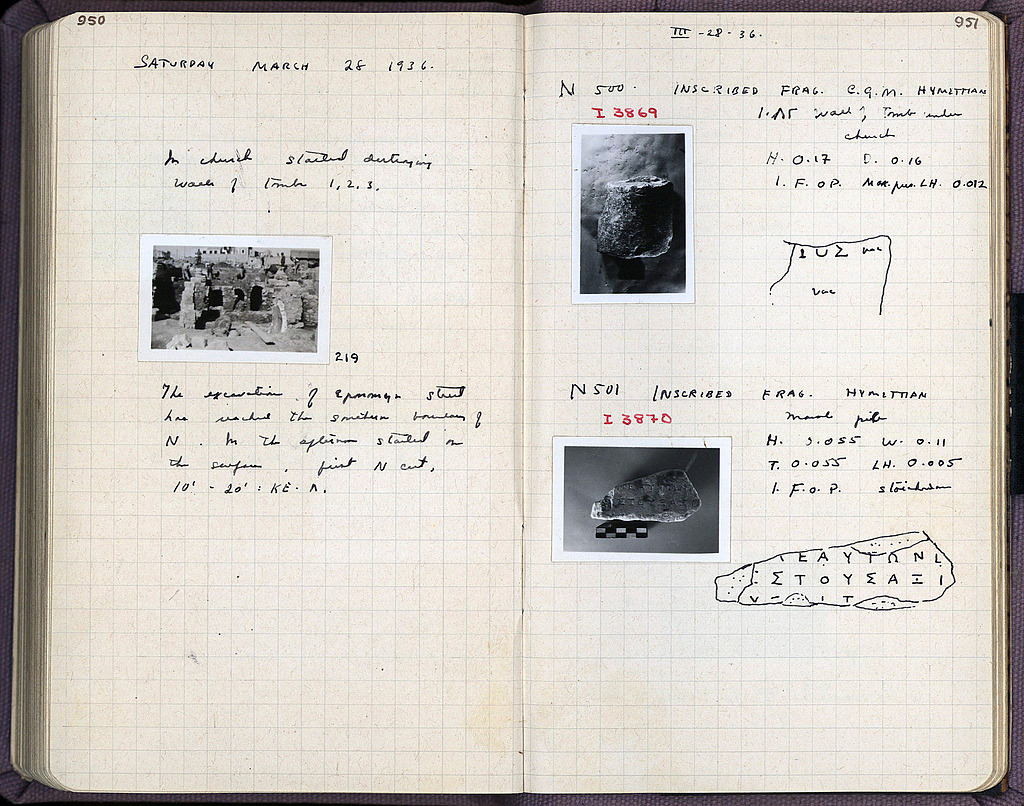 950
SATURDAY MARCH 28 1936.
In church started destroying
walls of tombs 1, 2, 3.
219
The excavation of street
has reached the southern boundary of
N. In the afternoon started on
the surface, first N cut,
10' - 20' : ΚΕ - Λ.
951
III - 28 - 36.
N 500. INSCRIBED FRAG. C.G.M. HYMETTIAN
I 3869
wall of Tomb under
church
H. 0.17 D. 0.16
I. F. o P. Max. pres. LH. 0.012
Ι Υ Σ vac
vac
N 501 INSCRIBED FRAG. HYMETTIAN
I 3870
marble pile
H. 0.055 W. 0.11
T. 0.055 LH. 0.005
I. F. o. P. stoichedon
Ε Α Υ Τ Ω Ν
Σ Τ Ο Υ Σ Α Ξ Ι
Ι Τ